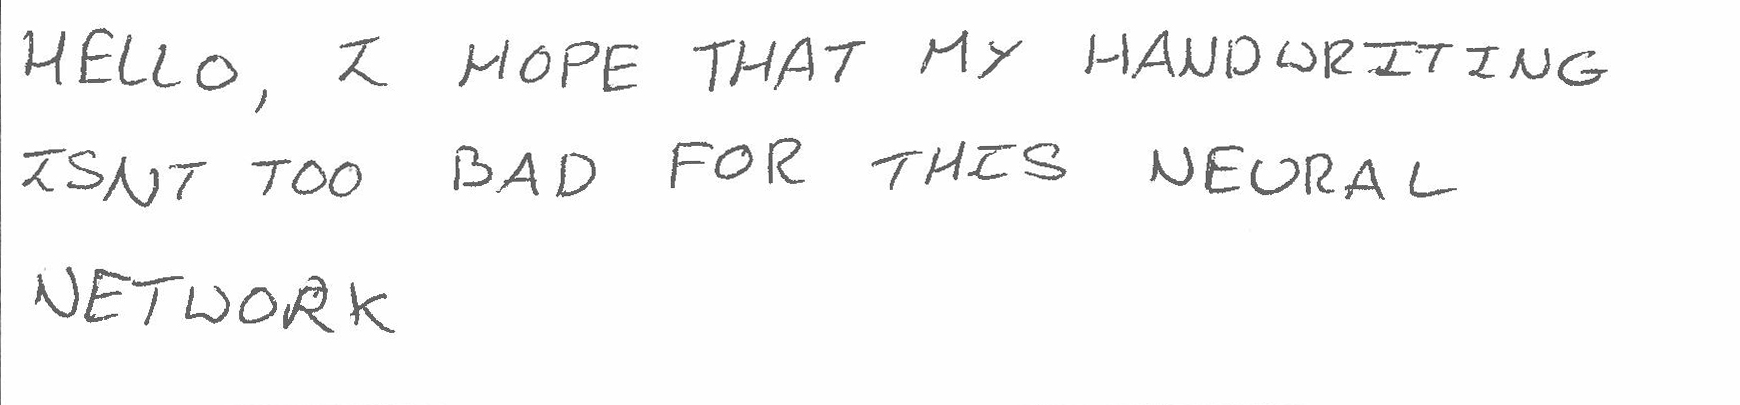 HELLO, I HOPE THAT MY HANDWRITING
ISNT TOO BAD FOR THIS NEURAL
NETWORK